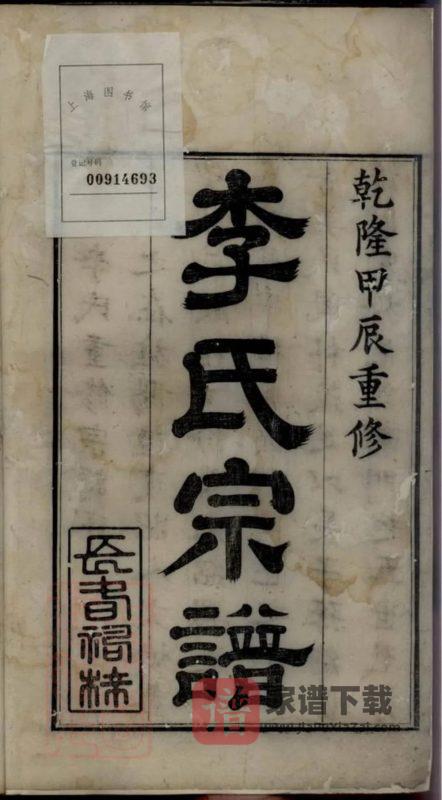 上海图书馆
登记号码
00914693
乾隆甲辰重修
李氏宗譜
家谱下载